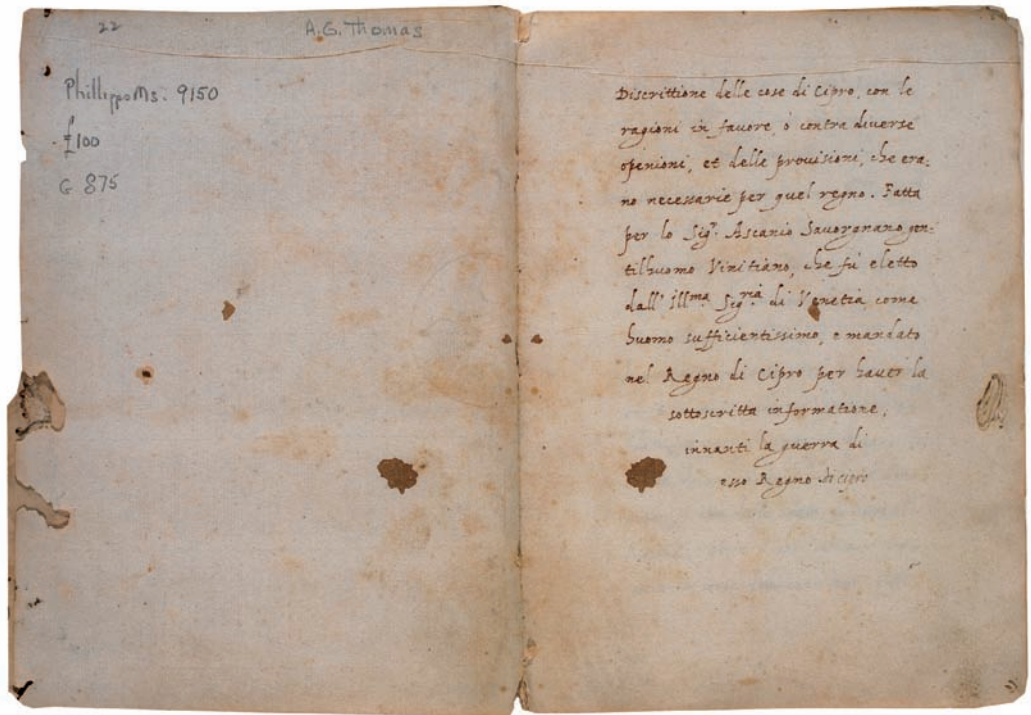 22
A.G. Thomas
Phillipps Ms. 9150
£100
G 875
Discrittione delle cose di Cipro, con le
ragioni in favore, ò contra diverse
openioni, et delle provisioni, che era:
no necessarie per quel regno. Fatta
per lo Sigr. Ascanio Savorgnano gen:
tilhuomo Vinitiano, che fù eletto
dall' Illma Sigria di Venetia come
huomo sufficientissimo, e mandato
nel Regno di Cipro per haver la
sottoscritta informatione,
innanti la guerra di
esso Regno di cipro